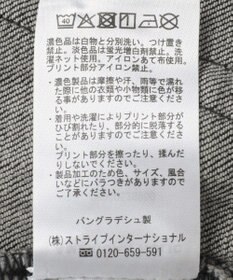 40
濃色品は白物と分別洗い、つけ置き
禁止。淡色品は蛍光増白剤禁止。洗
濯ネット使用。アイロンあて布使用。
プリント部分アイロン禁止。
・濃色製品は摩擦や汗、雨等で濡れ
た際に他の衣類や小物類に色が移
る事がありますのでご注意くださ
い。
・着用や洗濯によりプリント部分が
ひび割れたり、部分的に脱落する
ことがありますのでご注意くださ
い。
・プリント部分を擦ったり、揉んだ
りしないでください。
・製品加工のため色、サイズ、風合
いなどにバラつきがありますので
ご了承ください。
バングラデシュ製
(株)ストライプインターナショナル
☎ 0120-659-591